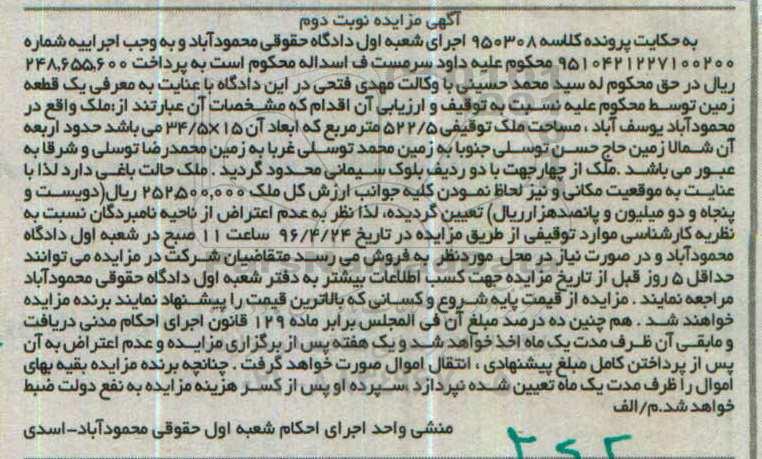 آگهی مزایده نوبت دوم
به حکایت پرونده کلاسه ۹۵۰۳۰۸ اجرای شعبه اول دادگاه حقوقی محمودآباد و به وجب اجراییه شماره
۹۵۱۰۴۲۱۲۲۷۱۰۰۲۰۰ محکوم علیه داود سرمست ف اسداله محکوم است به پرداخت ۲۴۸,۶۵۵,۶۰۰
ریال در حق محکوم له سید محمد حسینی با وکالت مهدی فتحی در این دادگاه با عنایت به معرفی یک قطعه
زمین توسط محکوم علیه نسبت به توقیف و ارزیابی آن اقدام که مشخصات آن عبارتند از:ملک واقع در
محمودآباد یوسف آباد ، مساحت ملک توقیفی ۵۲۲/۵ مترمربع که ابعاد آن ۱۵×۳۴/۵ می باشد حدود اربعه
آن شمالا زمین حاج حسن توسلی جنوبا به زمین محمد توسلی غربا به زمین محمدرضا توسلی و شرقا به
عبور می باشد .ملک از چهارجهت با دو ردیف بلوک سیمانی محدود گردید . ملک حالت باغی دارد لذا با
عنایت به موقعیت مکانی و نیز لحاظ نمودن کلیه جوانب ارزش کل ملک ۲۵۲,۵۰۰,۰۰۰ ریال(دویست و
پنجاه و دو میلیون و پانصدهزارریال) تعیین گردیده، لذا نظر به عدم اعتراض از ناحیه نامبردگان نسبت به
نظریه کارشناسی موارد توقیفی از طریق مزایده در تاریخ ۹۶/۴/۲۴ ساعت ۱۱ صبح در شعبه اول دادگاه
محمودآباد و در صورت نیاز در محل موردنظر به فروش می رسد متقاضیان شرکت در مزایده می توانند
حداقل ۵ روز قبل از تاریخ مزایده جهت کسب اطلاعات بیشتر به دفتر شعبه اول دادگاه حقوقی محمودآباد
مراجعه نمایند . مزایده از قیمت پایه شروع و کسانی که بالاترین قیمت را پیشنهاد نمایند برنده مزایده
خواهند شد . هم چنین ده درصد مبلغ آن فی المجلس برابر ماده ۱۲۹ قانون اجرای احکام مدنی دریافت
و مابقی آن ظرف مدت یک ماه اخذ خواهد شد و یک هفته پس از برگزاری مزایده و عدم اعتراض به آن
پس از پرداختن کامل مبلغ پیشنهادی ، انتقال اموال صورت خواهد گرفت . چنانچه برنده مزایده بقیه بهای
اموال را ظرف مدت یک ماه تعیین شده نپردازد ،سپرده او پس از کسر هزینه مزایده به نفع دولت ضبط
خواهد شد.م/الف
منشی واحد اجرای احکام شعبه اول حقوقی محمودآباد-اسدی